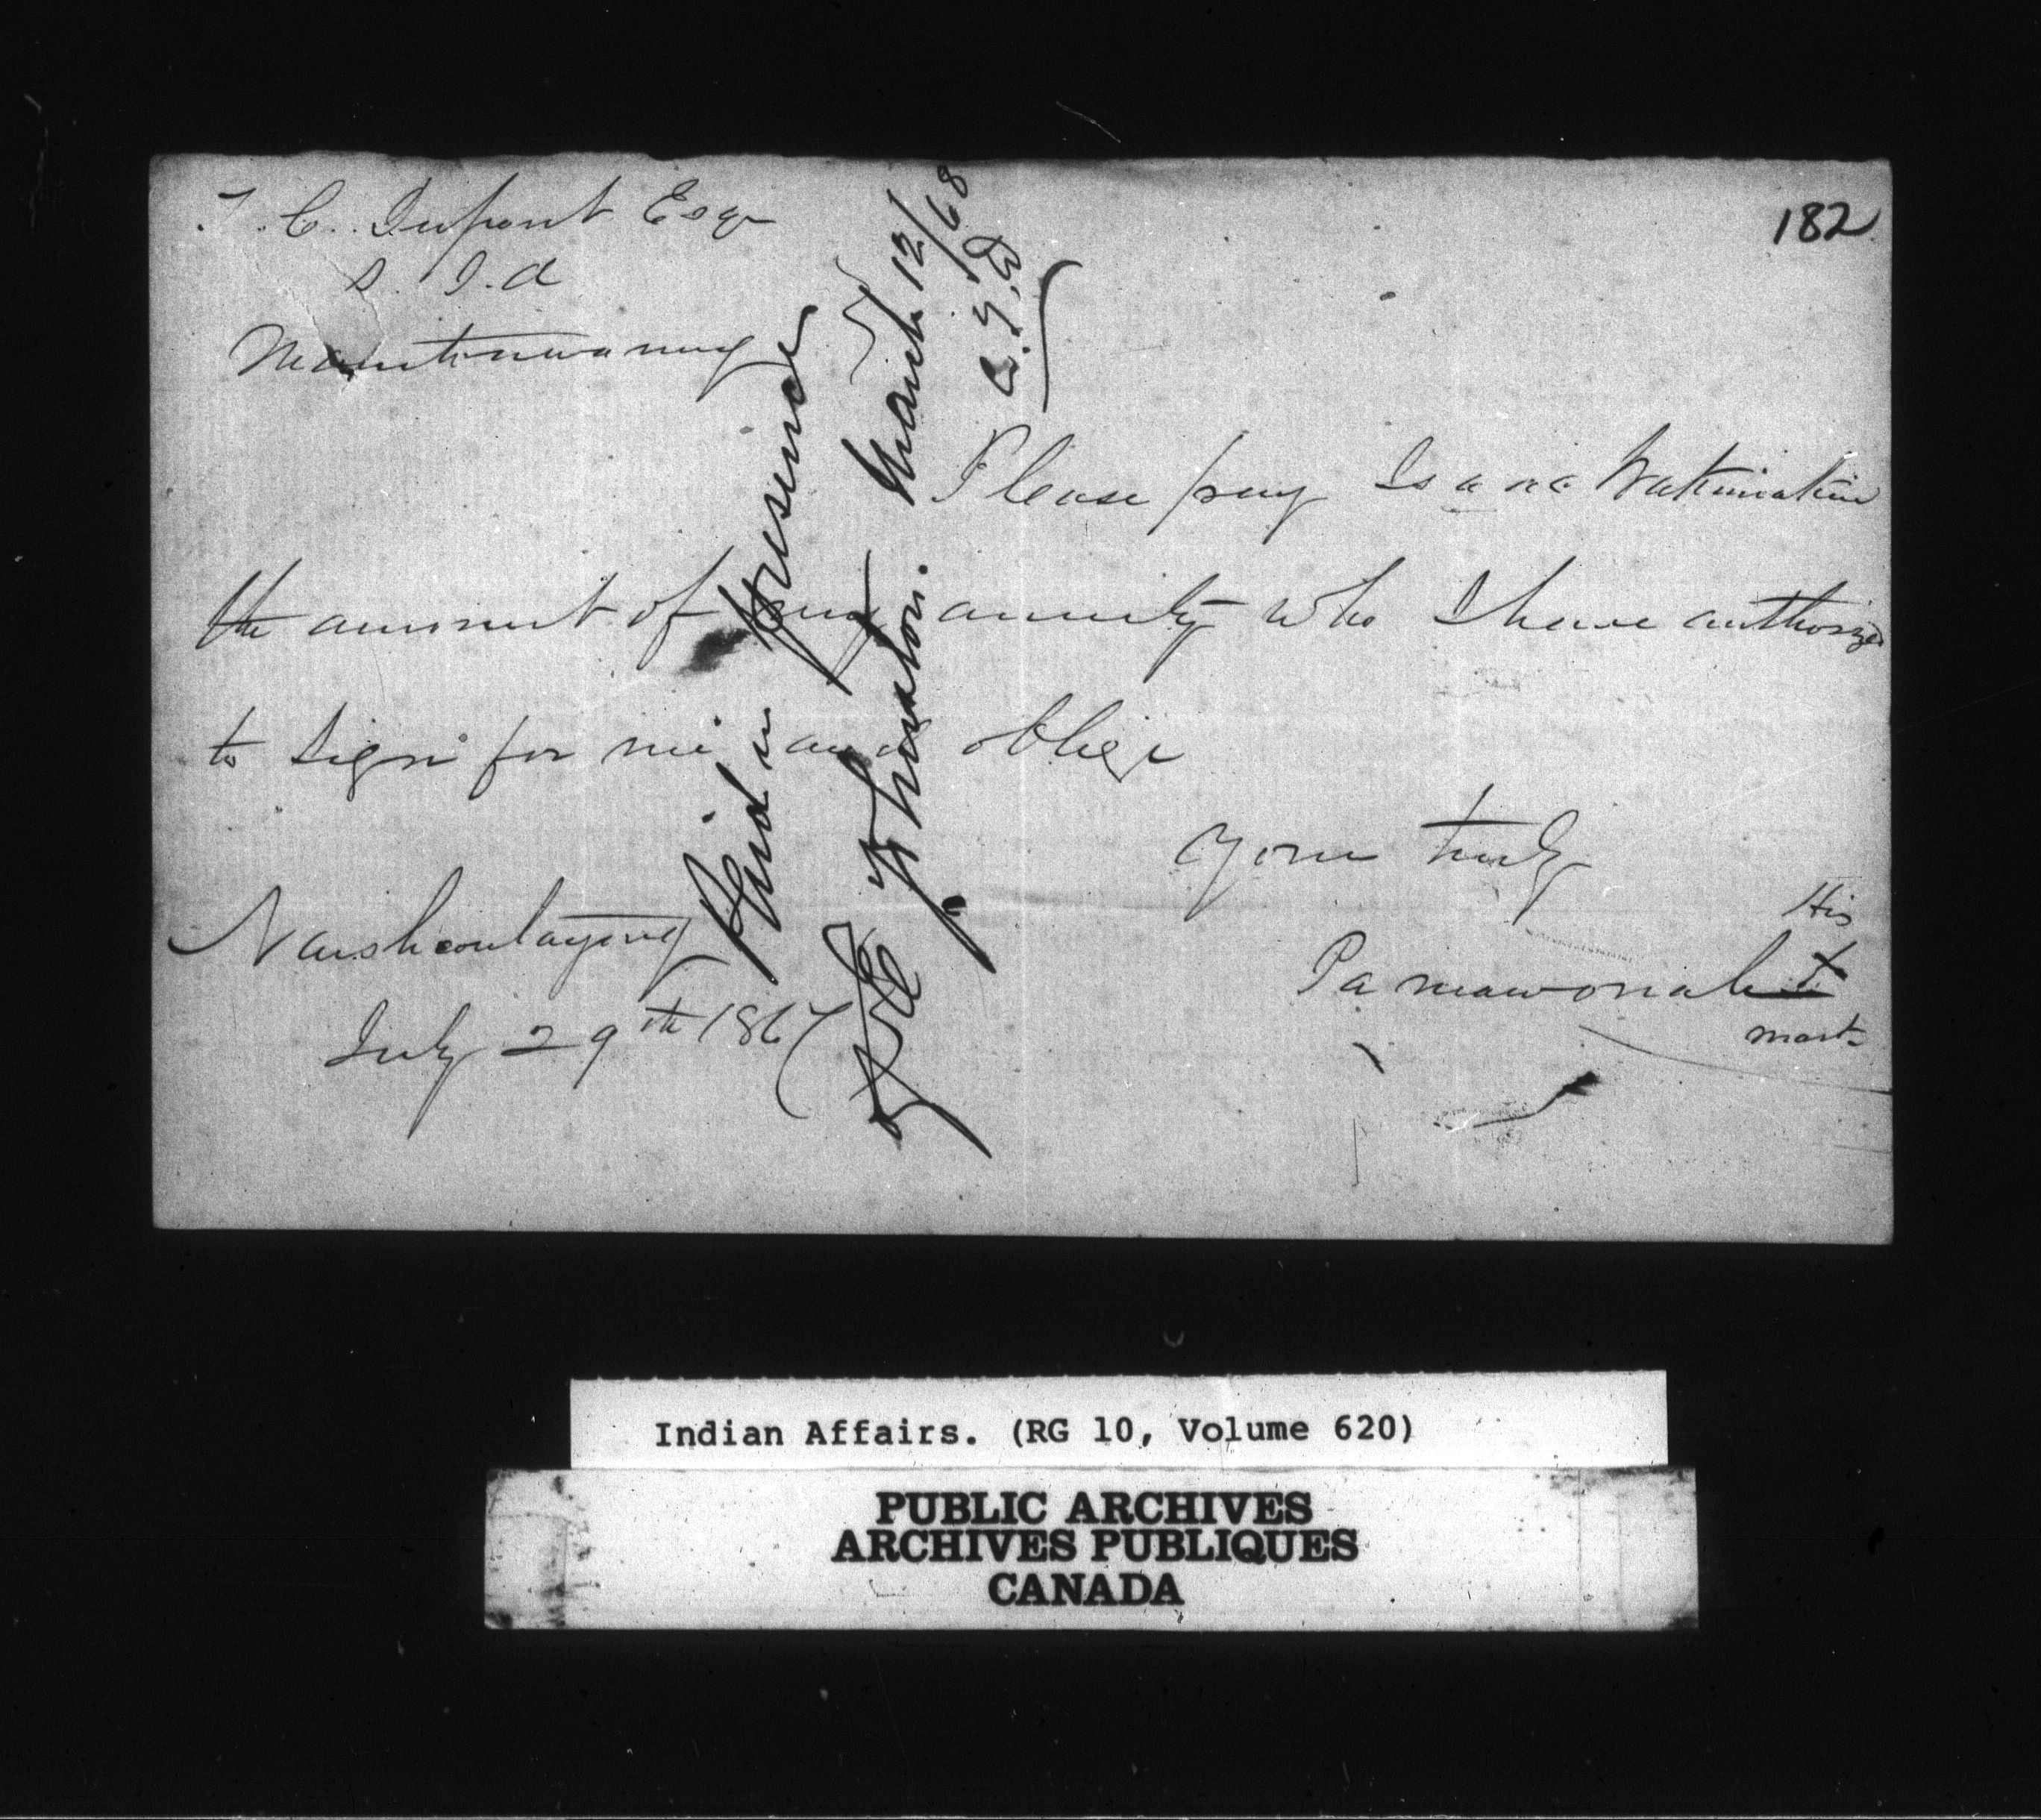 182
T. C. Dupont Esqr
S. I. A
Manitowaning
Please pay Isaac
the amount of my annuity who I have authorized
to Sign for me and oblige
Your truly
His
Pamawonah X
mark
July 29th 1867
Paid in presence
of
March 12/68
C. T. D
Indian Affairs. (RG 10, Volume 620)
PUBLIC ARCHIVES
ARCHIVES PUBLIQUES
CANADA